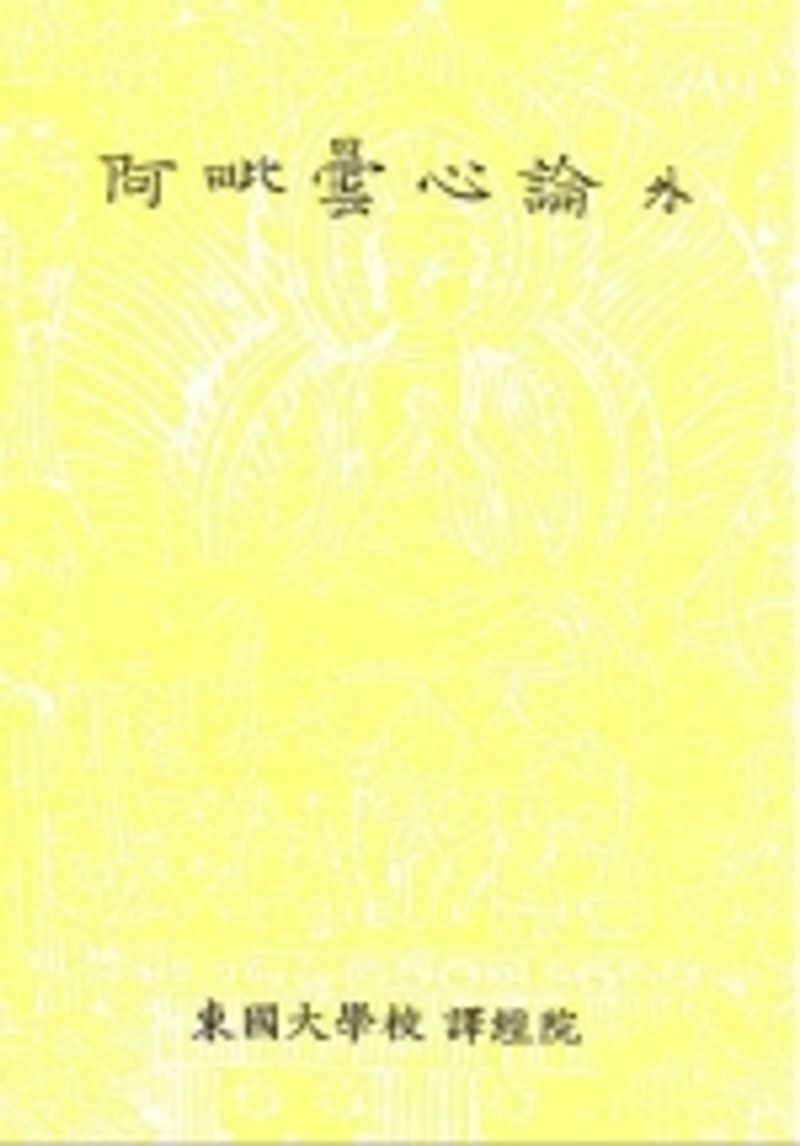 阿毗曇心論
東國大學校 譯經院